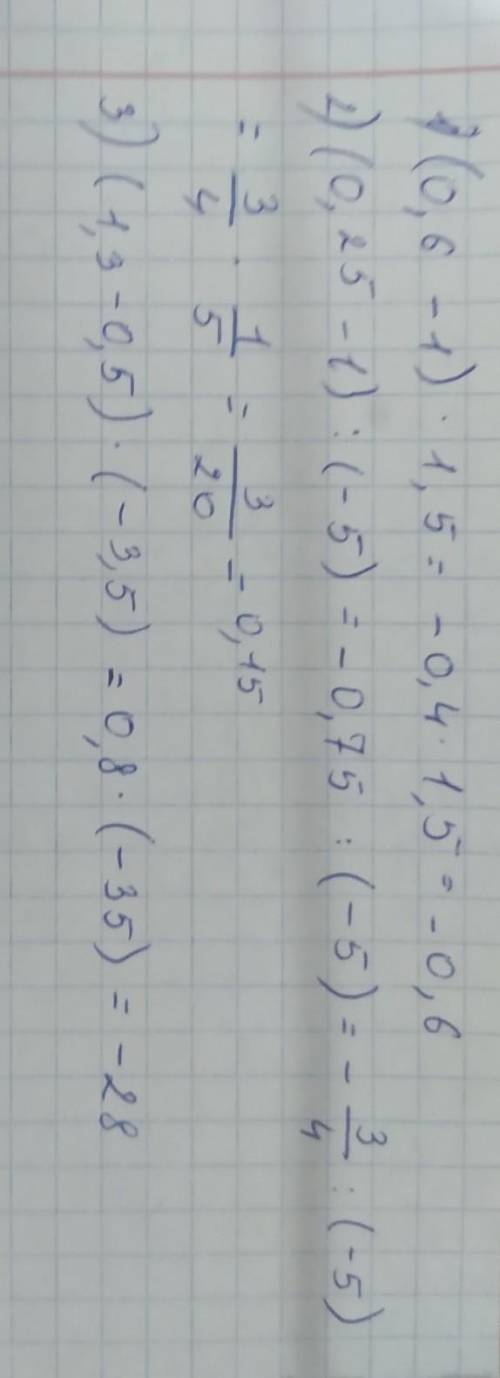 1) (0,6 - 1) · 1,5 = - 0,4 · 1,5 = - 0,6
2) (0,25 - 1) : (-5) = - 0,75 : (-5) = - 3/4 : (-5)
= 3/4 · 1/5 = 3/20 = 0,15
3) (1,3 - 0,5) · (-3,5) = 0,8 · (-35) = -28